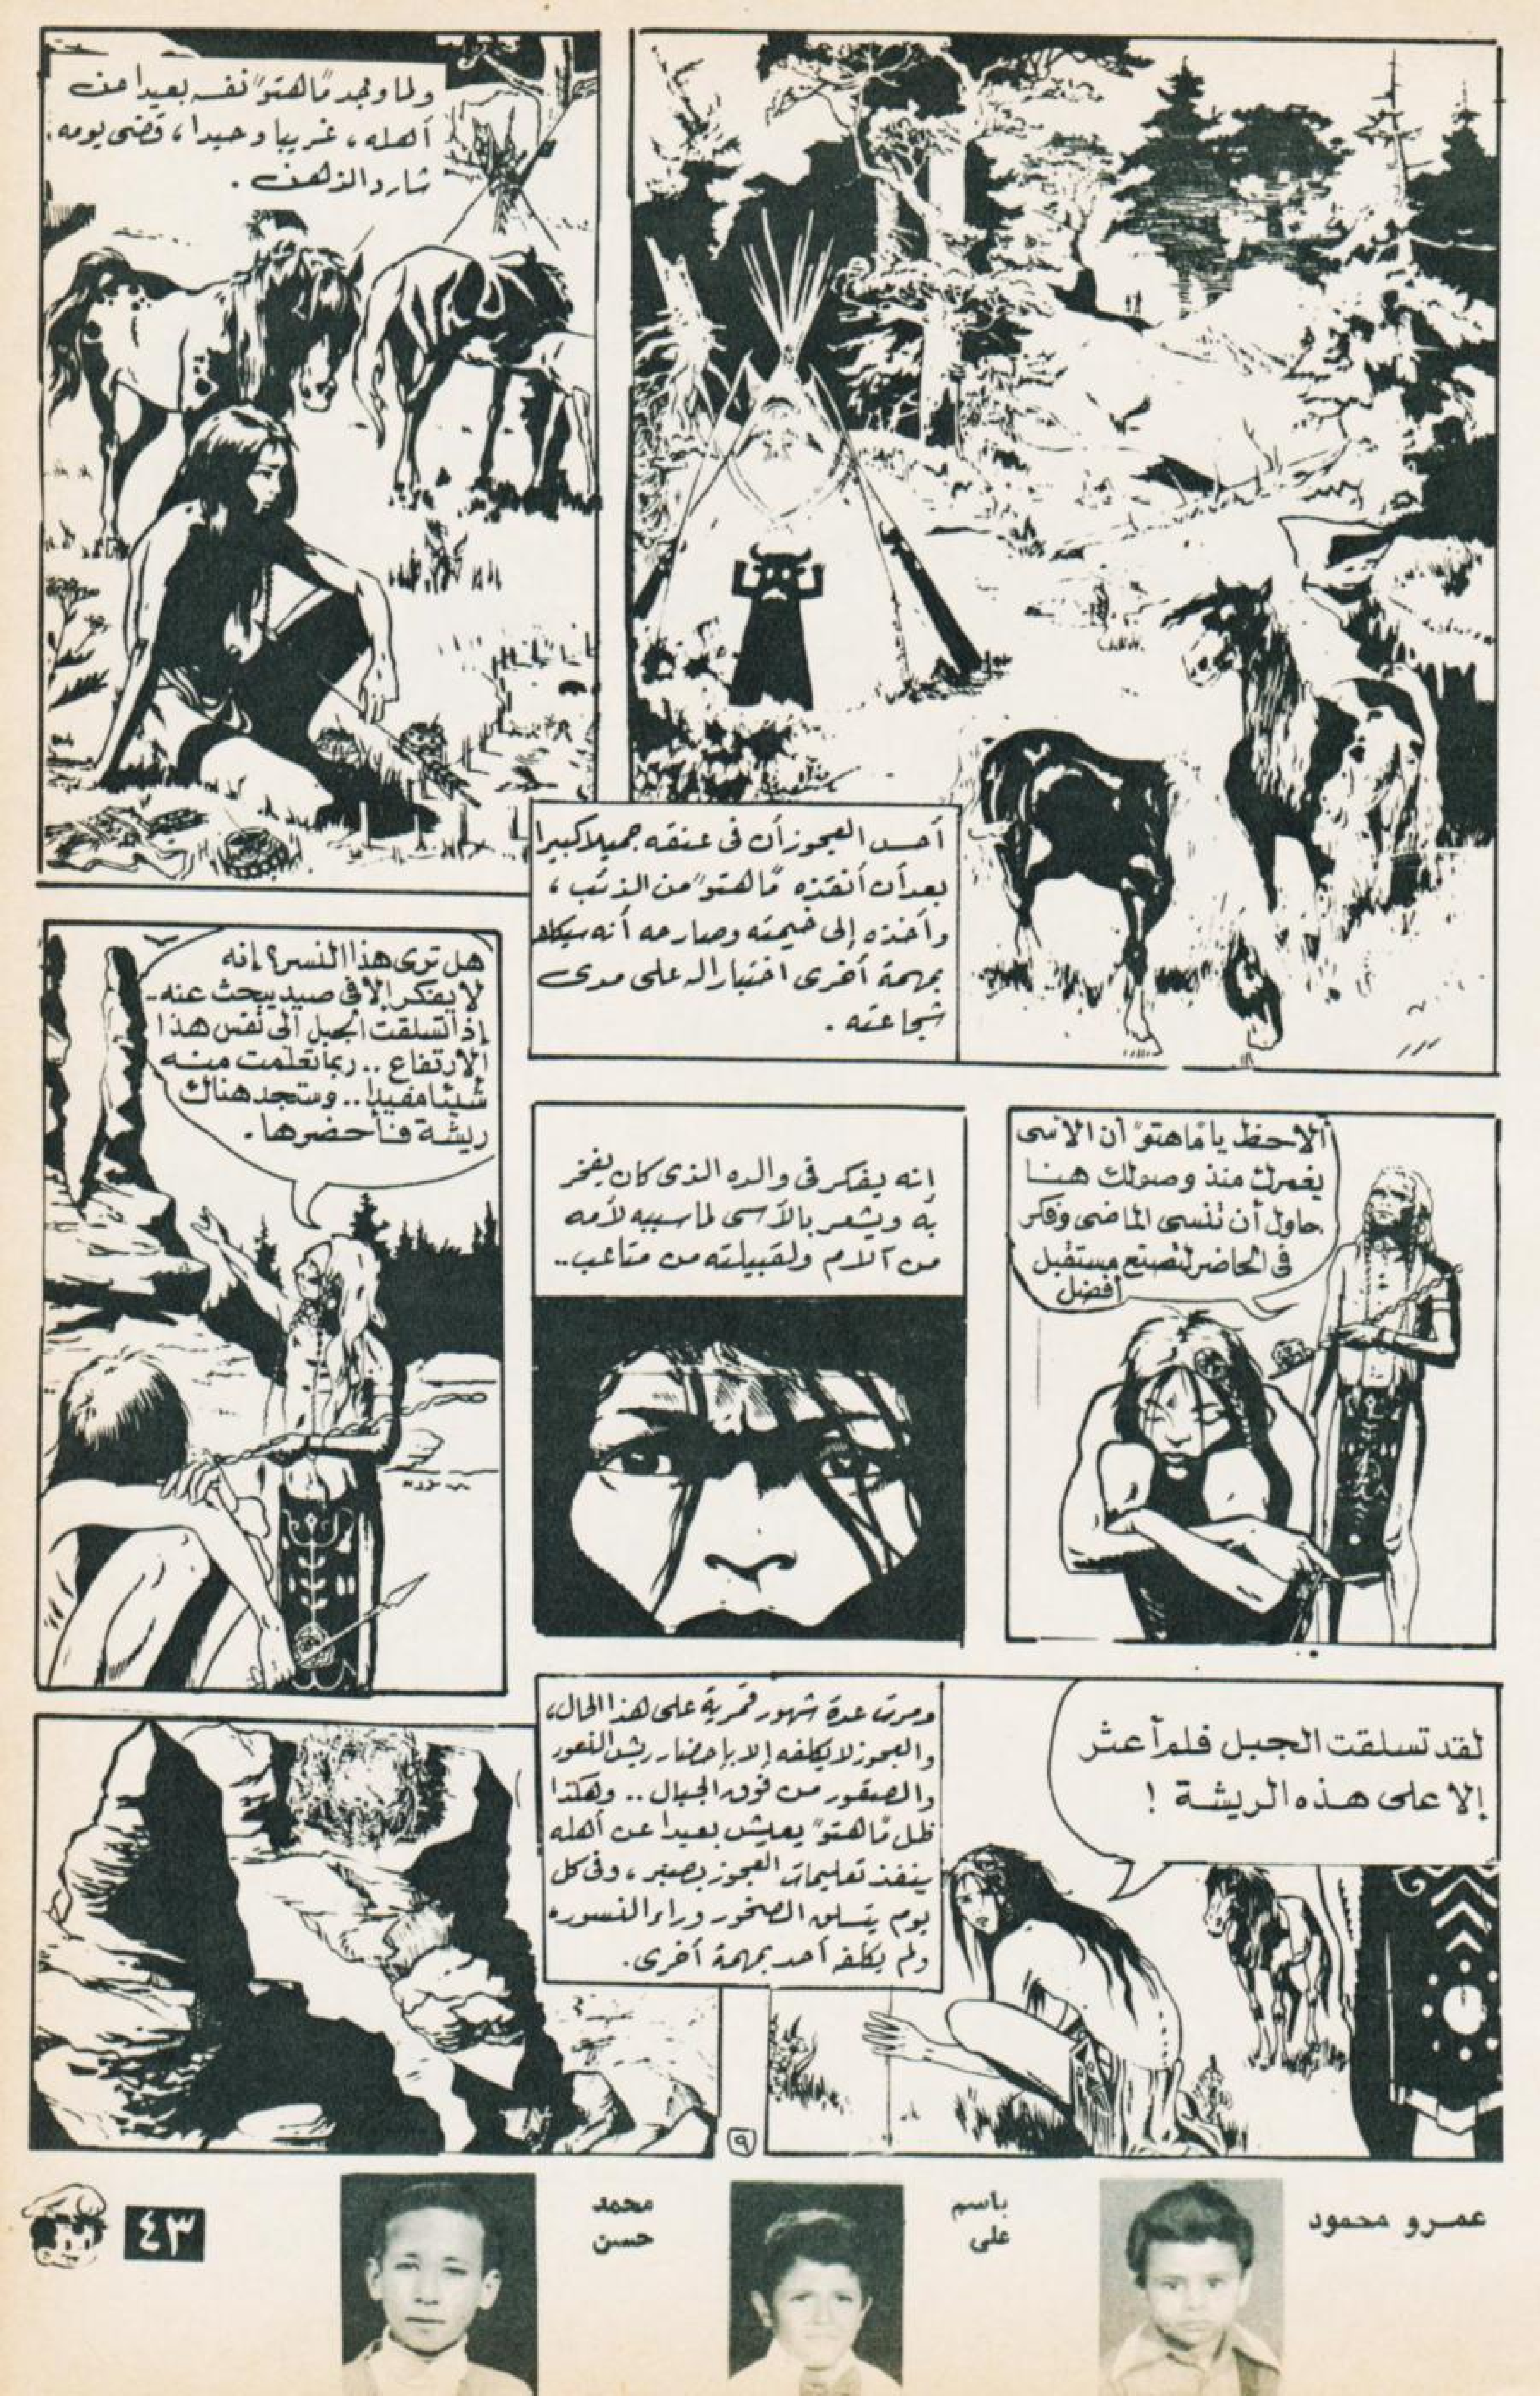 أحس العجوز أن فى عنقه جميلا كبيرا
بعد أن أنقذه "ماهتو" من الذئب ،
وأخذه إلى خيمته وصارحه أنه سيكلفه
بمهمة أخرى اختبارا له على مدى
شجاعته .
ولما وجد "ماهتو" نفسه بعيدا عن
أهله ، غريبا وحيدا ، قضى يومه
شارد الذهن .
ألاحظ يا "ماهتو" أن الأسى
يغمرك منذ وصولك هنا
حاول أن تنسى الماضى وفكر
فى الحاضر لتصنع مستقبل
أفضل
إنه يفكر فى والده الذى كان يفخر
به ويشعر بالأسى لما سببه لأمه
من آلام ولقبيلته من متاعب ..
هل ترى هذا النسر؟ إنه
لا يفكر إلا فى صيد يبحث عنه ..
إذا تسلقت الجبل الى نفس هذا
الارتفاع .. ربما تعلمت منه
شيئا مفيدا .. وستجد هناك
ريشة فأحضرها .
لقد تسلقت الجبل فلم أعثر
إلا على هذه الريشة !
ومرت عدة شهور قمرية على هذا الحال ،
والعجوز لا يكلفه إلا بإحضار ريش النسور
والصقور من فوق الجبال .. وهكذا
ظل "ماهتو" يعيش بعيدا عن أهله
ينفذ تعليمات العجوز بصبر ، وفى كل
يوم يتسلق الصخور وراء النسور ،
ولم يكلفه أحد بمهمة أخرى .
٩
عمرو محمود
باسم
على
محمد
حسن
٤٣